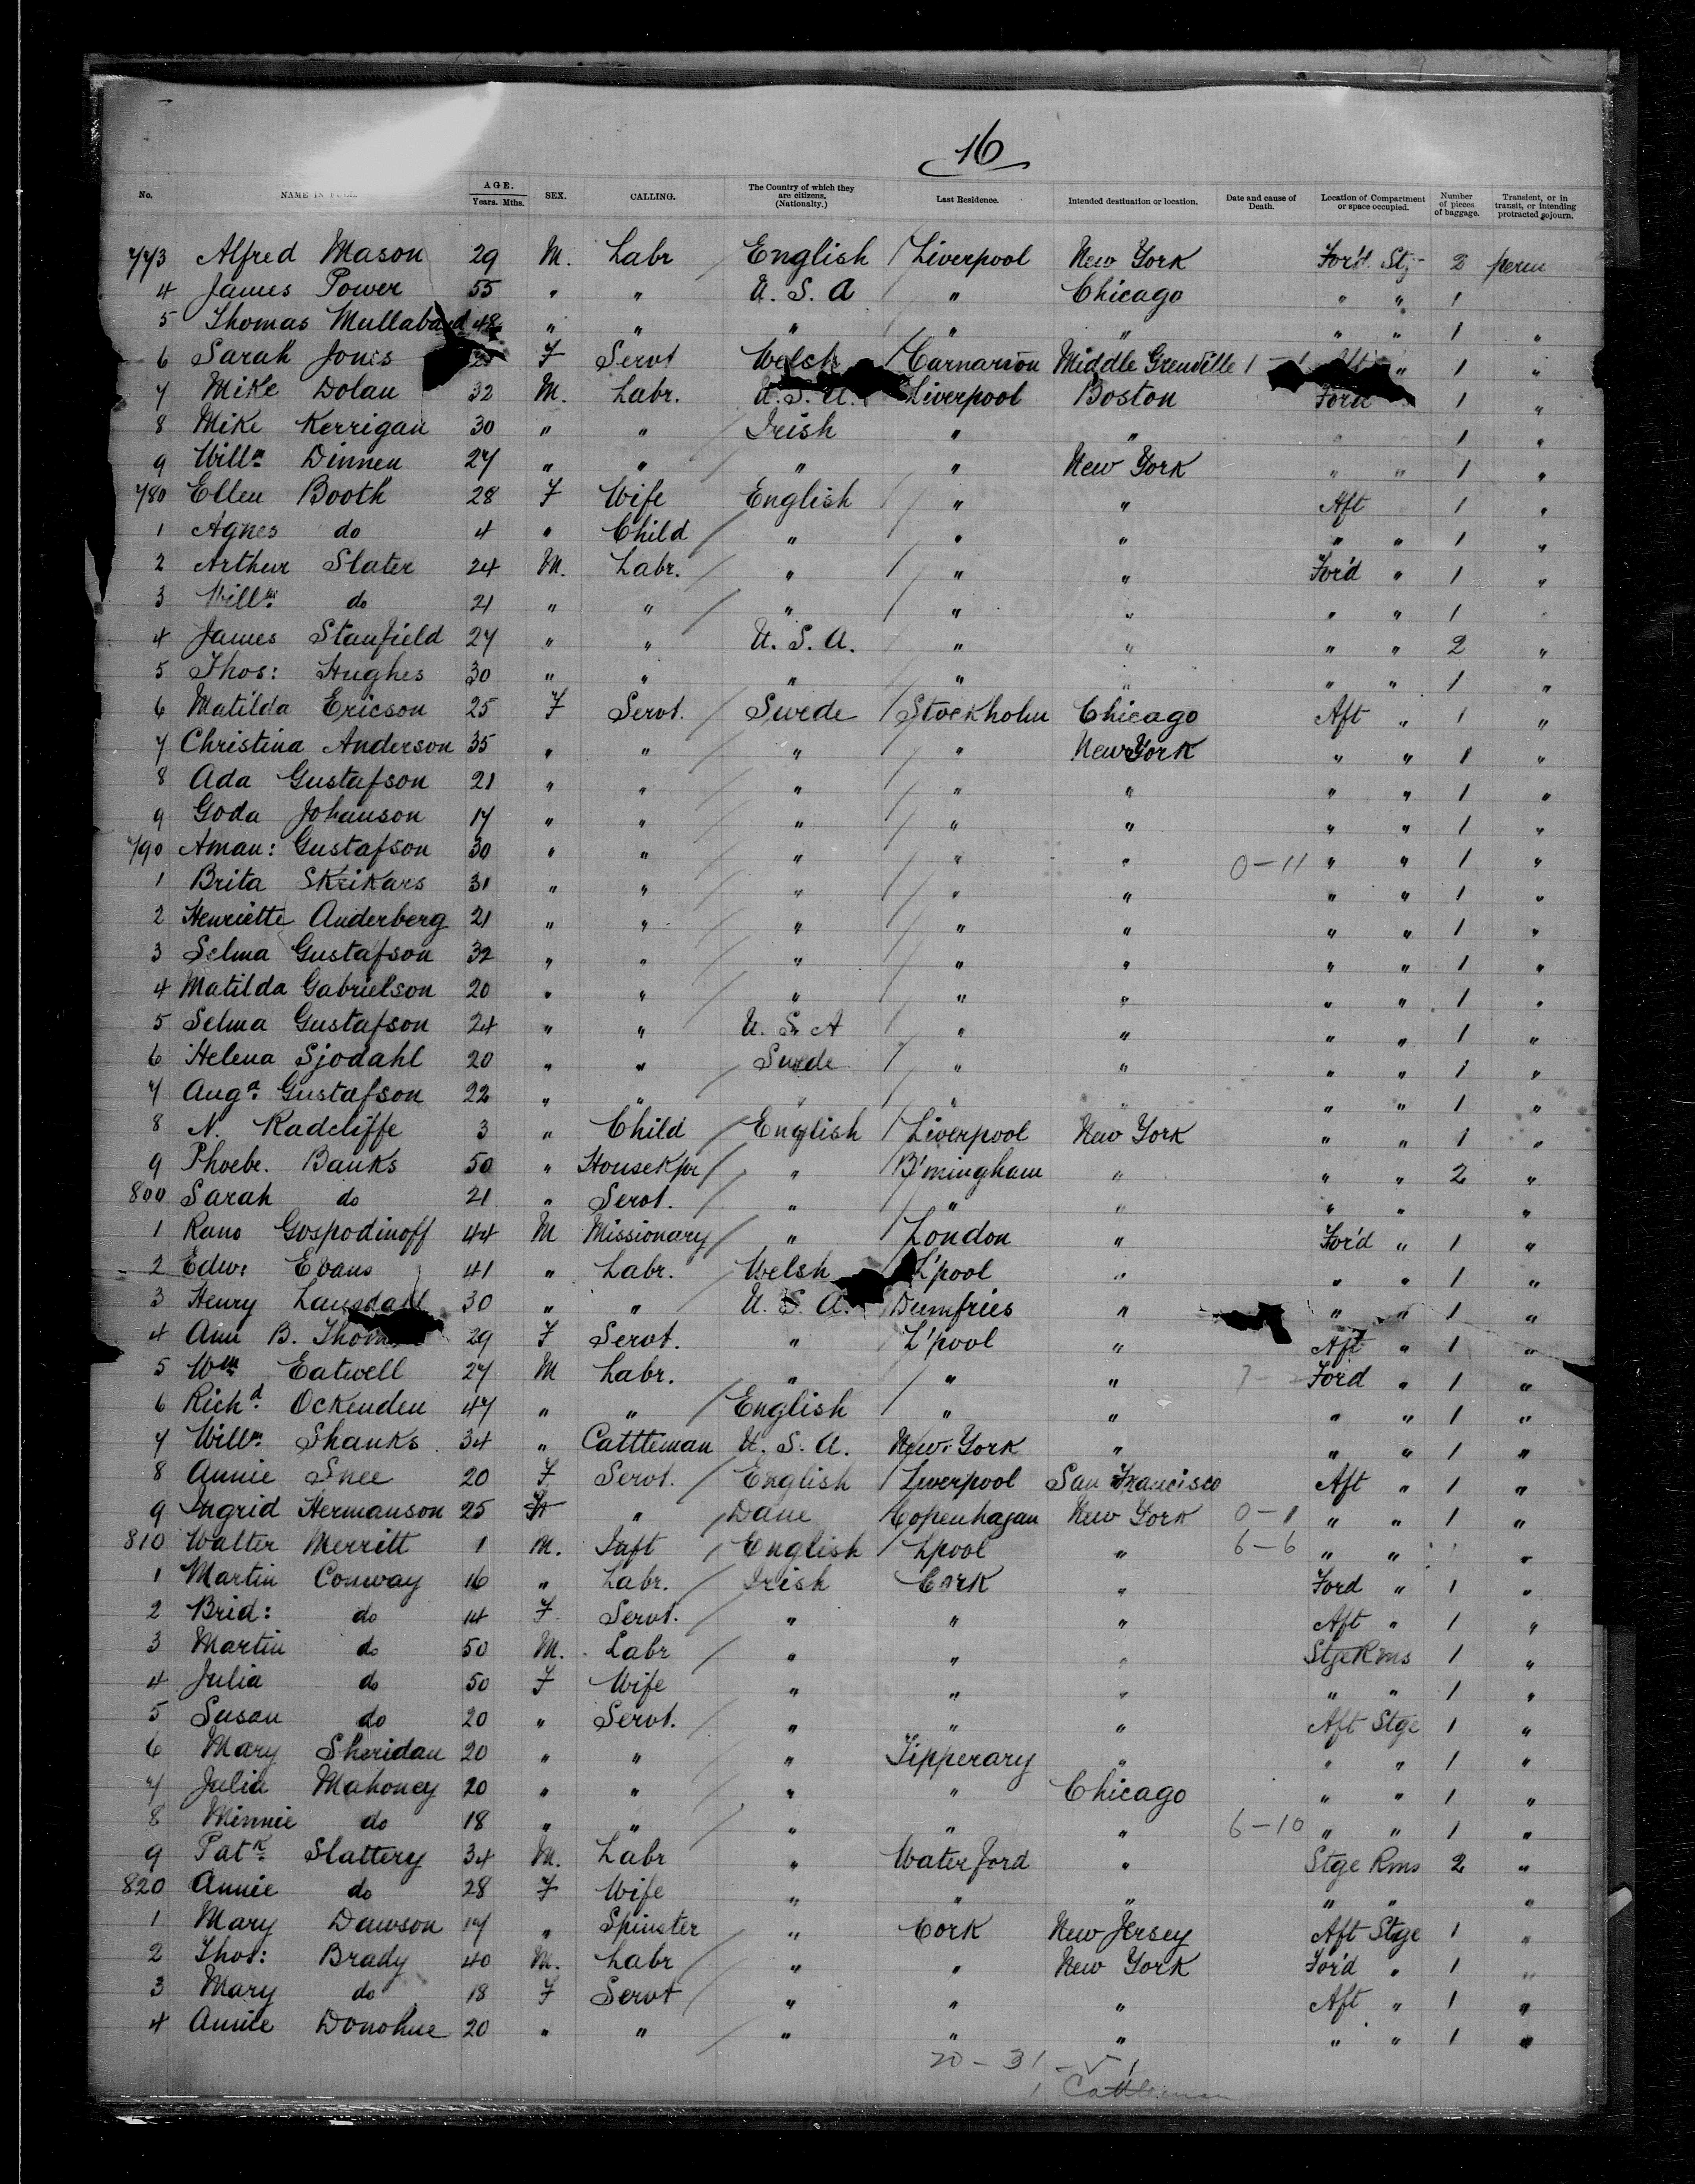 16
No. NAME IN FULL. AGE. Years. Mths. SEX. CALLING. The Country of which they are citizens. (Nationalty.) Last Residence. Intended destination or location. Date and cause of Death. Location of Compartment or space occupied. Number of pieces of baggage. Transient, or in transit, or intending protracted sojourn.
773 Alfred Mason 29 M. Labr / English / Liverpool New York For'd Stg 2 perm
4 James Power 55 " " U. S. A / " Chicago " " 1
5 Thomas 48 " " " / " " " " 1 "
6 Sarah Jones F Servt Welsh / Carnarvon Middle Grenville 1 - 1 Aft " 1 "
7 Mike Dolan 32 M. Labr. U. S. A. Liverpool Boston Ford 1 "
8 Mike Kerrigan 30 " " / Irish " " " 1 "
9 Willm Dinnen 27 " " / " " New York " " 1 "
780 Ellen Booth 28 F Wife English / " " Aft 1 "
1 Agnes do 4 " Child / " / " " " " 1 "
2 Arthur Slater 24 M. Labr. / " / " " For'd " 1 "
3 Willm do 21 " " / " / " " " " 1 "
4 James Stanfield 27 " " U. S. A. / " " " " 2 "
5 Thos: Hughes 30 " " " / " " " " 1 "
6 Matilda Ericson 25 F Servt. / Swede / Stockholm Chicago Aft " 1 "
7 Christina Anderson 35 " " / " / " New York " " 1 "
8 Ada Gustafson 21 " " / " / " " " " 1 "
9 Goda Johanson 17 " " / " / " " " " 1 "
790 Aman: Gustafson 30 " " / " / " " 0 - 11 " " 1 "
1 Brita Skrikars 31 " " / " / " " " " 1 "
2 Henriette Anderberg 21 " " / " / " " " " 1 "
3 Selma Gustafson 32 " " / " / " " " " 1 "
4 Matilda Gabrielson 20 " " / " / " " " " 1 "
5 Selma Gustafson 24 " " U. S. A / " " " " 1 "
6 Helena Sjodahl 20 " " Swede / " " " " 1 "
7 Auga Gustafson 22 " " / " / " " " " 1 "
8 N. Radcliffe 3 " Child / English / Liverpool New York " " 1 "
9 Phoebe. Banks 50 " Housekpr / " / B'mingham " " " 2 "
800 Sarah do 21 " Servt. / " / " " " " "
1 Rano Gospodinoff 44 M Missionary / " / London " For'd " 1 "
2 Edw: Evans 41 " Labr. / Welsh L'pool " " " 1 "
3 Henry Lansdall 30 " " U. S. A. Dumfries " " " 1 "
4 Ann B. 29 F Servt. " / L'pool " Aft " 1 "
5 Wm Eatwell 27 M Labr. " / " " Ford " 1 "
6 Richd. Ockenden 47 " " / English / " " " " 1 "
7 Willm Shanks 34 " Cattleman U. S. A. New York " " " 1 "
8 Annie Snee 20 F Servt. / English / Liverpool San Francisco Aft " 1 "
9 Ingrid Hermanson 25 F " / Dane Copenhagan New York 0 - 1 " " 1 "
810 Walter Merritt 1 M. Inft / English / Lpool " 6 - 6 " " "
1 Martin Conway 16 " Labr. / Irish Cork " Ford " 1 "
2 Brid: do 14 F Servt. / " " " Aft " 1 "
3 Martin do 50 M. Labr / " " " Stge Rms 1 "
4 Julia do 50 F Wife " " " " " 1 "
5 Susan do 20 " Servt. / " " " Aft Stge 1 "
6 Mary Sheridan 20 " " / " Tipperary " " " 1 "
7 Julia Mahoney 20 " " / " " Chicago " " 1 "
8 Minnie do 18 " " / " " " 6 - 10 " " 1 "
9 Patk. Slattery 34 M. Labr " Waterford " Stge Rms 2 "
820 Annie do 28 F Wife " " " " " "
1 Mary Dawson 17 " Spinster / " Cork New Jersey Aft Stge 1 "
2 Thos: Brady 40 M. Labr / " " New York For'd " 1 "
3 Mary do 18 F Servt / " " " Aft " 1 "
4 Annie Donohue 20 " " / " " " " " 1 "
20 - 31 - 1
1 Cattleman